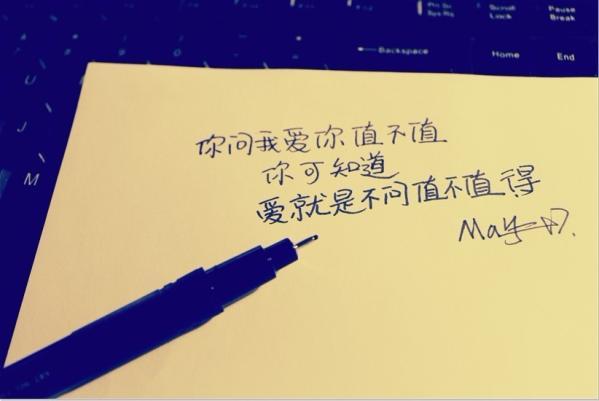 Scroll
Lock
Pause
Break
Backspace
Home
End
U
J
M
你问我爱你值不值
你可知道
爱就是不问值不值得